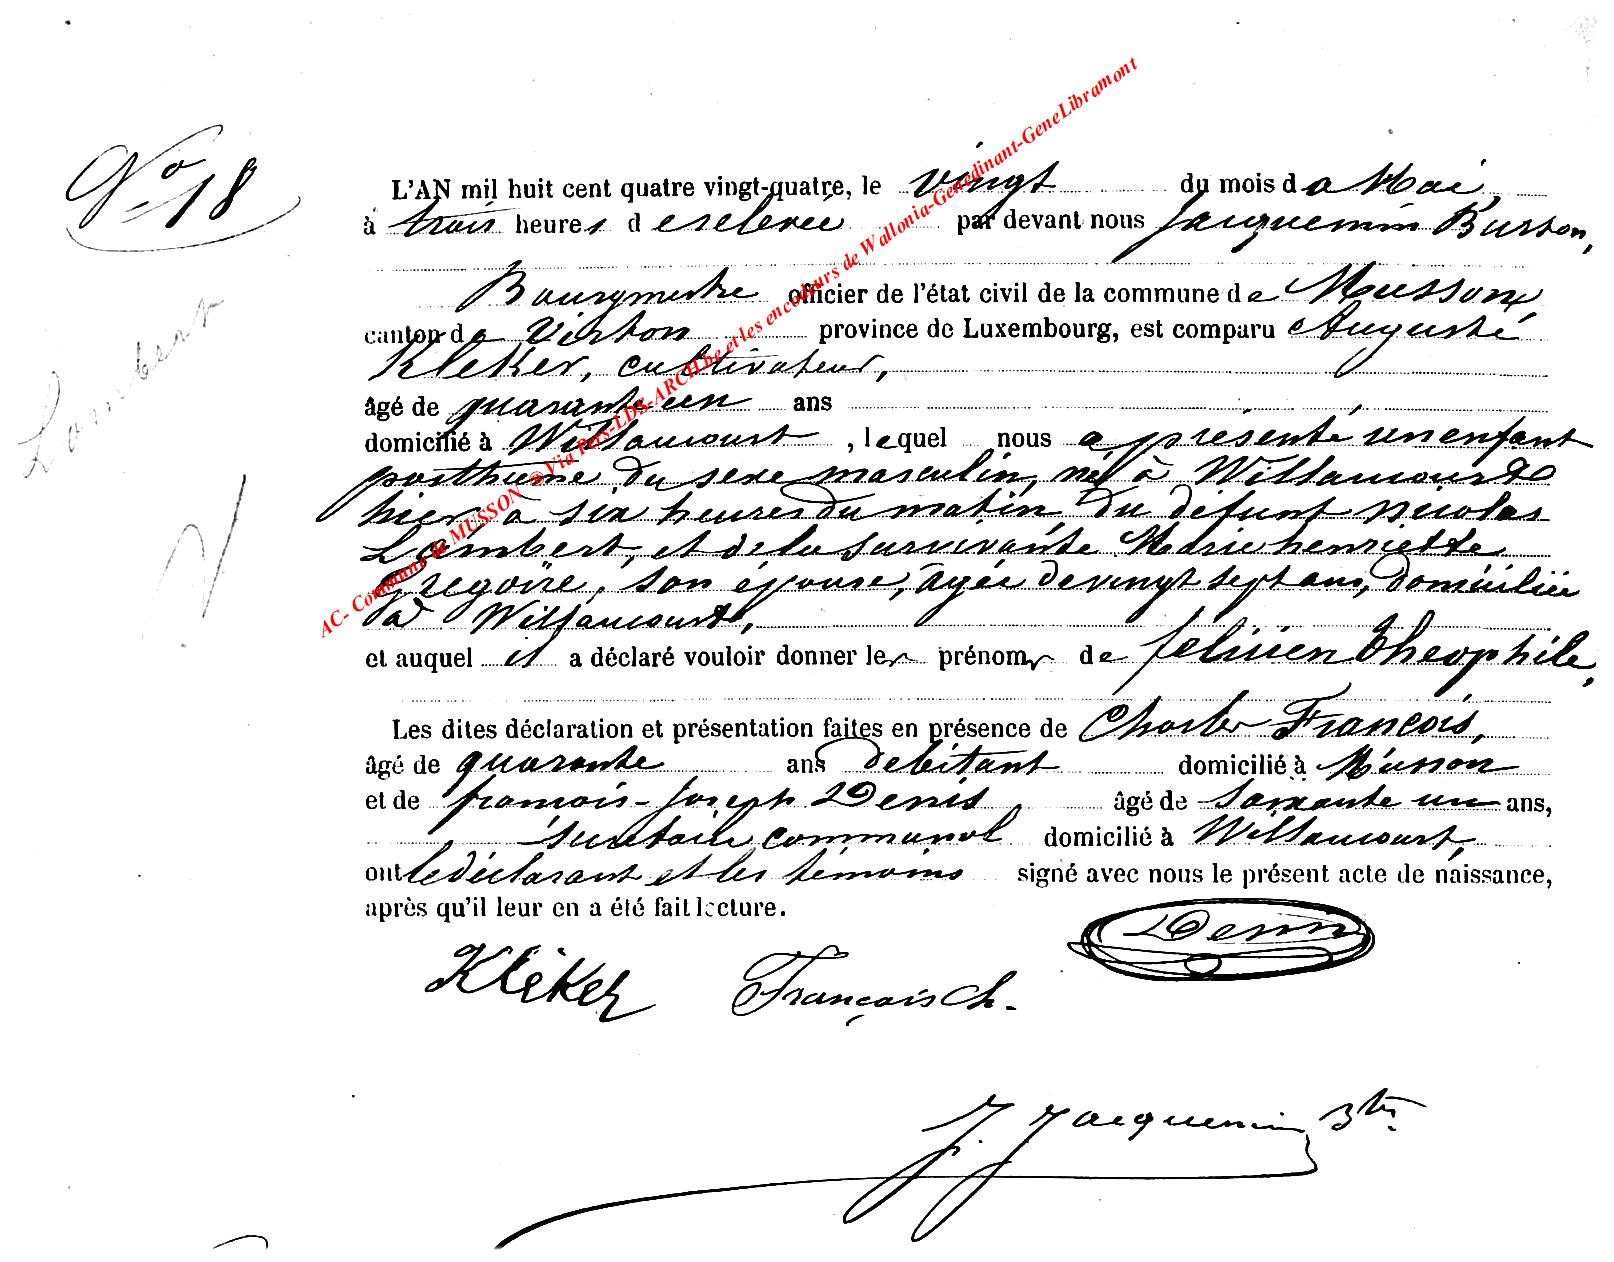 N° 18
L'AN mil huit cent quatre vingt-quatre, le vingt du mois de Mai,
à trois heures de relevée par devant nous Jacquemin Busson,
Bourgmestre officier de l'état civil de la commune de Musson,
canton de Virton province de Luxembourg, est comparu Auguste
Kleker, cultivateur,
âgé de quarante un ans
domicilié à Willancourt, lequel nous a présenté un enfant
posthume du sexe masculin, né à Willancourt
hier à six heures du matin, du défunt Nicolas
Lambert, et de la survivante Marie henriette
Gregoire, son épouse, âgée de vingt sept ans, domiciliée
à Willancourt,
et auquel il a déclaré vouloir donner les prénoms de felicien Theophile,
Les dites déclaration et présentation faites en présence de Charles François,
âgé de quarante ans débitant domicilié à Musson
et de françois-Joseph Denis âgé de soixante un ans,
secrétaire communal domicilié à Willancourt,
ont le déclarant et les témoins signé avec nous le présent acte de naissance,
après qu'il leur en a été fait lecture.
Lambert
Kléker François Ch. Denis
J. Jacquemin Btre.
AC- Commune de MUSSON @Via Pers-LDS-ARCH.be et les encodeurs de Wallonia-Genedinant-GeneLibramont